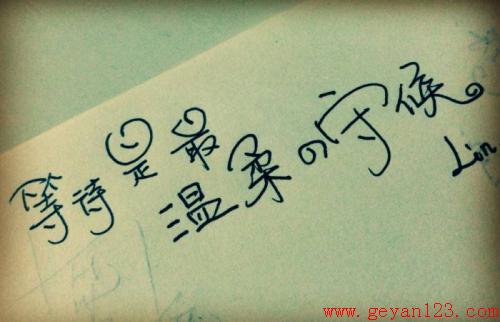 等待是最
温柔の守候。
Lin
www.geyan123.com